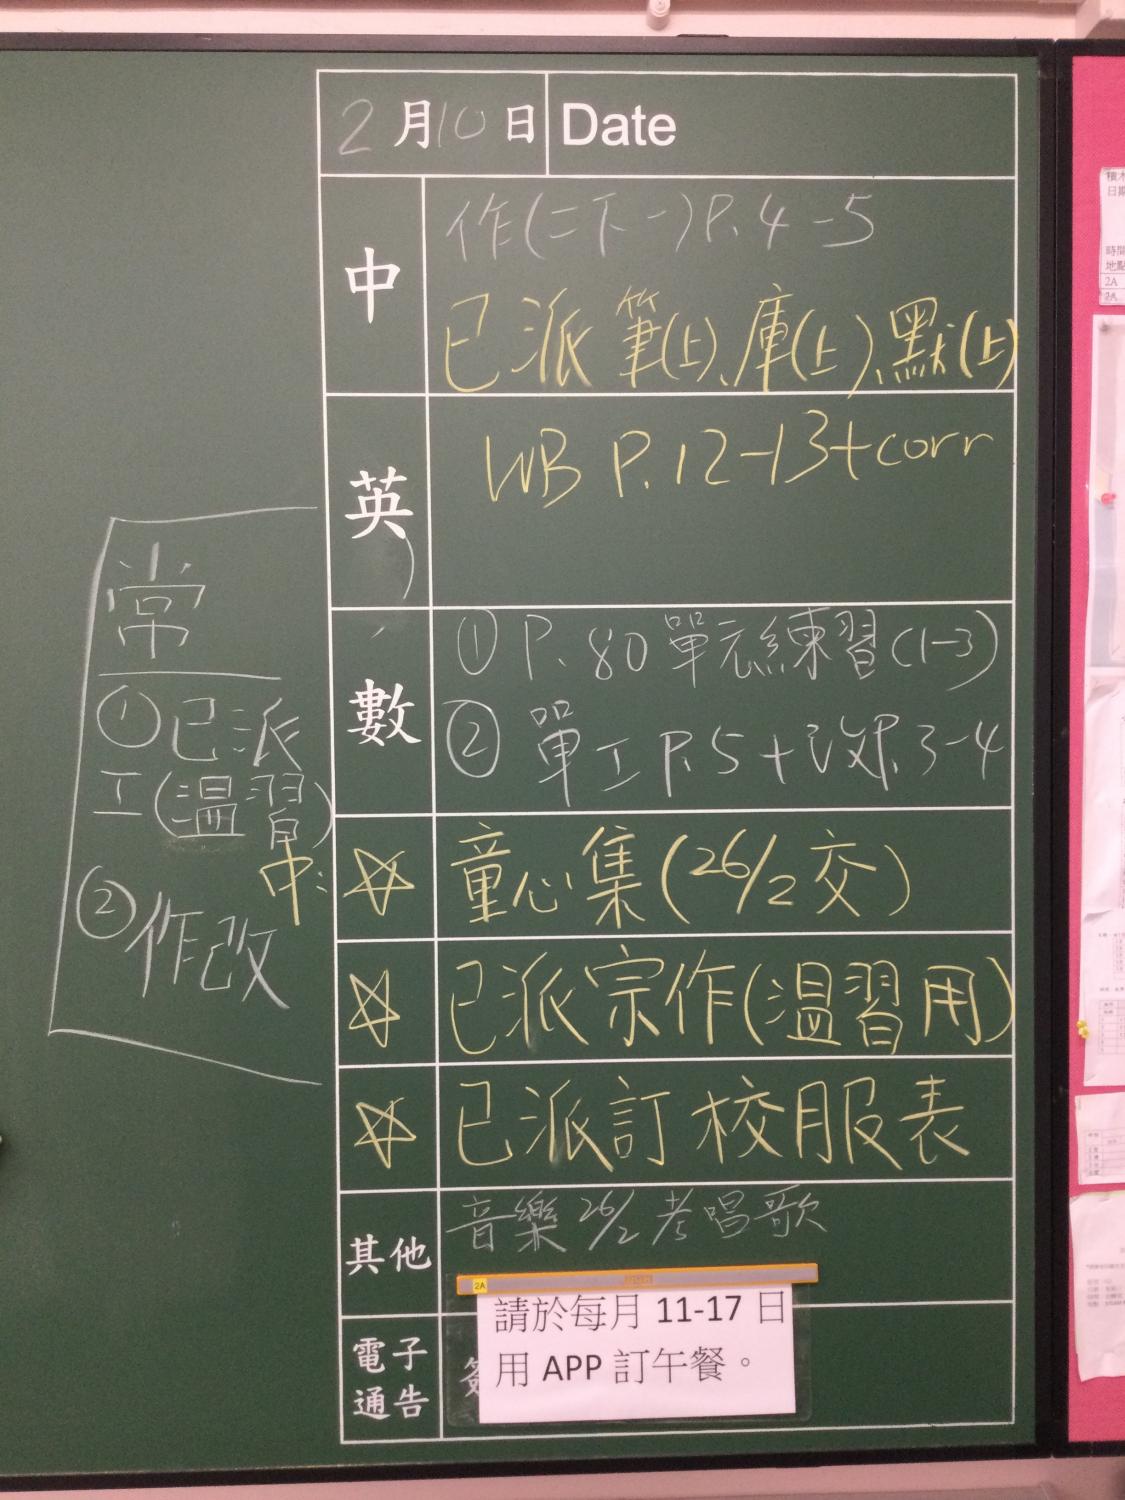 2月10日 Date
中
作(二下一)P.4-5
已派筆(上)、庫(上)、默(上)
英
WB P.12-13+corr
數
① P.80單元練習(1-3)
② 單工P.5+改P.3-4
☆ 童心集(26/2交)
☆ 已派宗作(溫習用)
☆ 已派訂校服表
其他
音樂26/2考唱歌
電子
通告
2A
請於每月 11-17 日
用 APP 訂午餐。
常
①已派
工(溫習)
中:
②作改